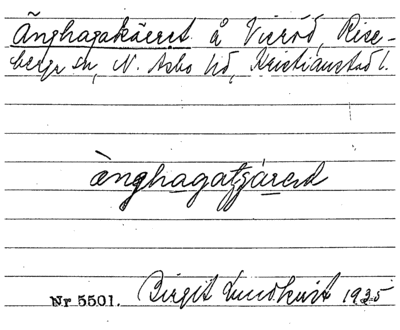 Änghagakäerret å Vieröd, Rise-
berga sn, N. Åsbo hd, Kristianstad l.
ànghagatjärerd
Nr 5501. Birgit Lundkvist 1935